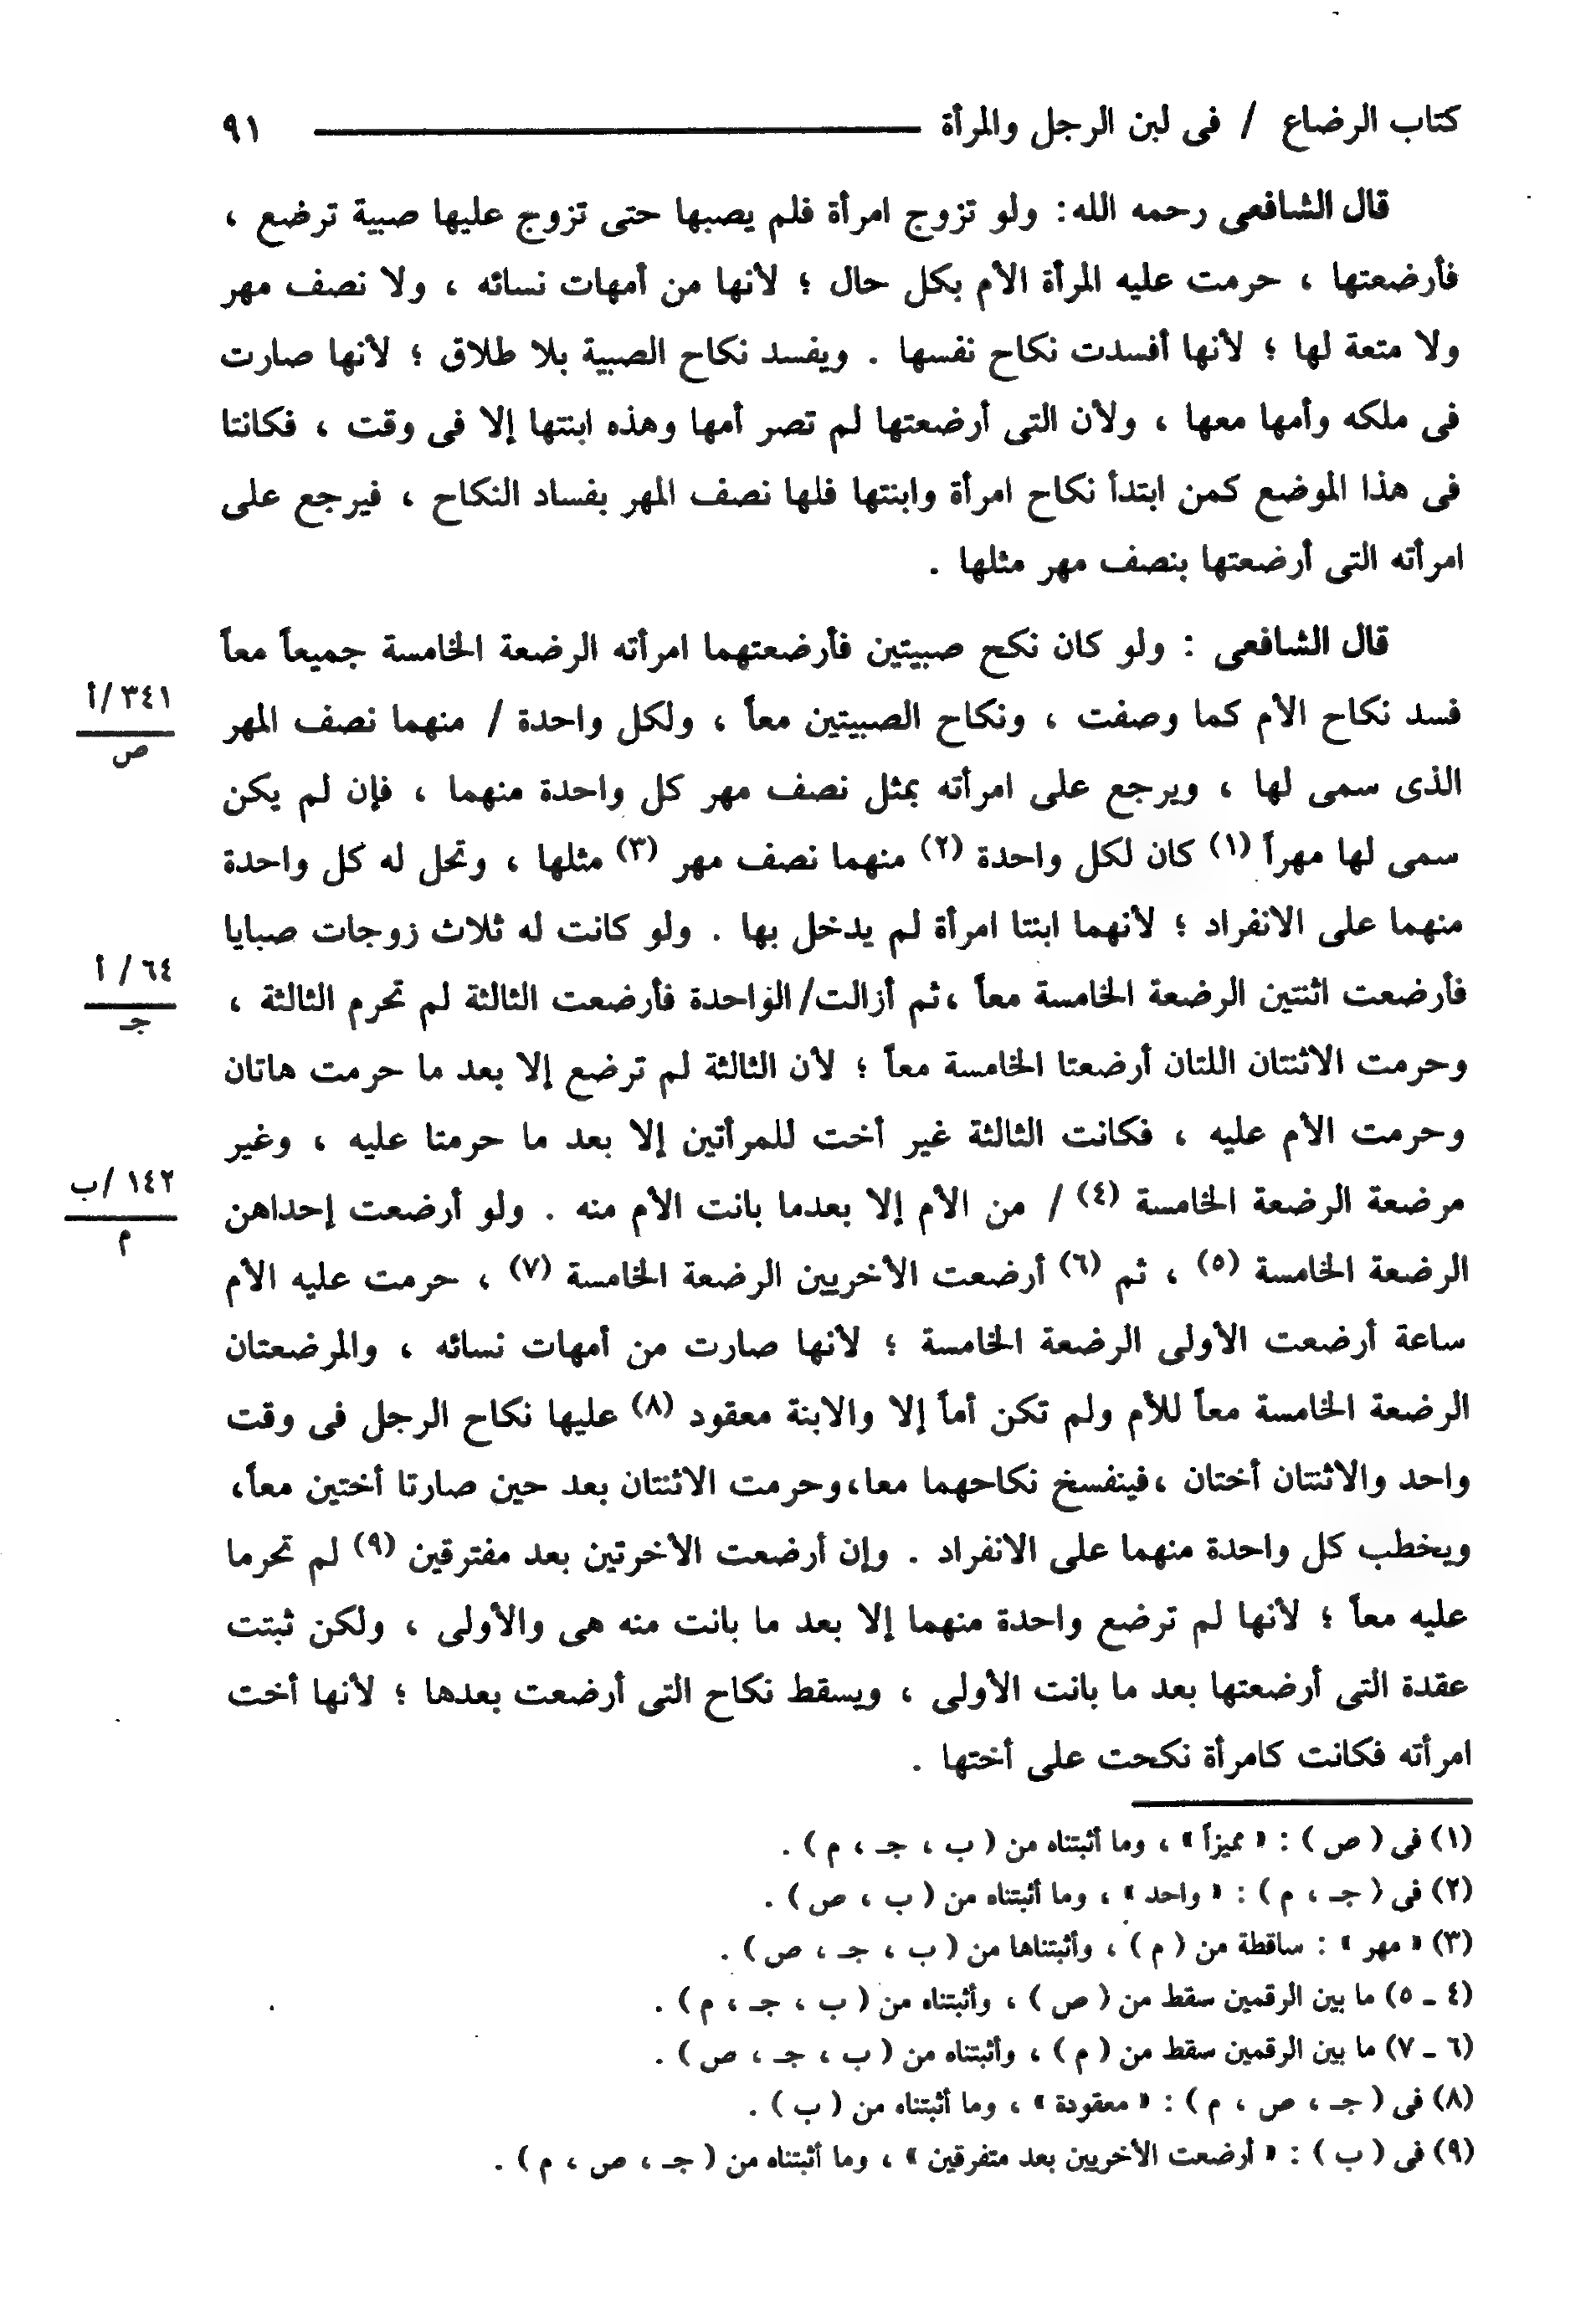 كتاب الرضاع / فى لبن الرجل والمرأة ٩١
قال الشافعى رحمه الله: ولو تزوج امرأة فلم يصبها حتى تزوج عليها صبية ترضع ،
فأرضعتها ، حرمت عليه المرأة الأم بكل حال ؛ لأنها من أمهات نسائه ، ولا نصف مهر
ولا متعة لها ؛ لأنها أفسدت نكاح نفسها . ويفسد نكاح الصبية بلا طلاق ؛ لأنها صارت
فى ملكه وأمها معها ، ولأن التى أرضعتها لم تصر أمها وهذه ابنتها إلا فى وقت ، فكانتا
فى هذا الموضع كمن ابتدأ نكاح امرأة وابنتها فلها نصف المهر بفساد النكاح ، فيرجع على
امرأته التى أرضعتها بنصف مهر مثلها .
قال الشافعى : ولو كان نكح صبيتين فأرضعتهما امرأته الرضعة الخامسة جميعاً معاً
فسد نكاح الأم كما وصفت ، ونكاح الصبيتين معاً ، ولكل واحدة / منهما نصف المهر
٣٤١ /أ
ص
الذى سمى لها ، ويرجع على امرأته بمثل نصف مهر كل واحدة منهما ، فإن لم يكن
سمى لها مهراً (١) كان لكل واحدة (٢) منهما نصف مهر (٣) مثلها ، وتحل له كل واحدة
منهما على الانفراد ؛ لأنهما ابنتا امرأة لم يدخل بها . ولو كانت له ثلاث زوجات صبايا
فأرضعت اثنتين الرضعة الخامسة معاً ،ثم أزالت/ الواحدة فأرضعت الثالثة لم تحرم الثالثة ،
٦٤ / أ
جـ
وحرمت الاثنتان اللتان أرضعتا الخامسة معاً ؛ لأن الثالثة لم ترضع إلا بعد ما حرمت هاتان
وحرمت الأم عليه ، فكانت الثالثة غير أخت للمرأتين إلا بعد ما حرمتا عليه ، وغير
مرضعة الرضعة الخامسة (٤) / من الأم إلا بعدما بانت الأم منه . ولو أرضعت إحداهن
١٤٢ /ب
م
الرضعة الخامسة (٥) ، ثم (٦) أرضعت الأخريين الرضعة الخامسة (٧) ، حرمت عليه الأم
ساعة أرضعت الأولى الرضعة الخامسة ؛ لأنها صارت من أمهات نسائه ، والمرضعتان
الرضعة الخامسة معاً للأم ولم تكن أماً إلا والابنة معقود (٨) عليها نكاح الرجل فى وقت
واحد والاثنتان أختان ،فينفسخ نكاحهما معا،وحرمت الاثنتان بعد حين صارتا أختين معاً،
ويخطب كل واحدة منهما على الانفراد . وإن أرضعت الأخرتين بعد مفترقين (٩) لم تحرما
عليه معاً ؛ لأنها لم ترضع واحدة منهما إلا بعد ما بانت منه هى والأولى ، ولكن ثبتت
عقدة التى أرضعتها بعد ما بانت الأولى ، ويسقط نكاح التى أرضعت بعدها ؛ لأنها أخت
امرأته فكانت كامرأة نكحت على أختها .
(١) فى ( ص ) : « مميزاً » ، وما أثبتناه من ( ب ، جـ ، م ) .
(٢) فى ( جـ ، م ) : « واحد » ، وما أثبتناه من ( ب ، ص ) .
(٣) « مهر » : ساقطة من ( م ) ، وأثبتناها من ( ب ، جـ ، ص ) .
(٤ ـ ٥) ما بين الرقمين سقط من ( ص ) ، وأثبتناه من ( ب ، جـ ، م ) .
(٦ ـ ٧) ما بين الرقمين سقط من ( م ) ، وأثبتناه من ( ب ، جـ ، ص ) .
(٨) فى ( جـ ، ص ، م ) : « معقودة » ، وما أثبتناه من ( ب ) .
(٩) فى ( ب ) : « أرضعت الأخريين بعد متفرقين » ، وما أثبتناه من ( جـ ، ص ، م ) .